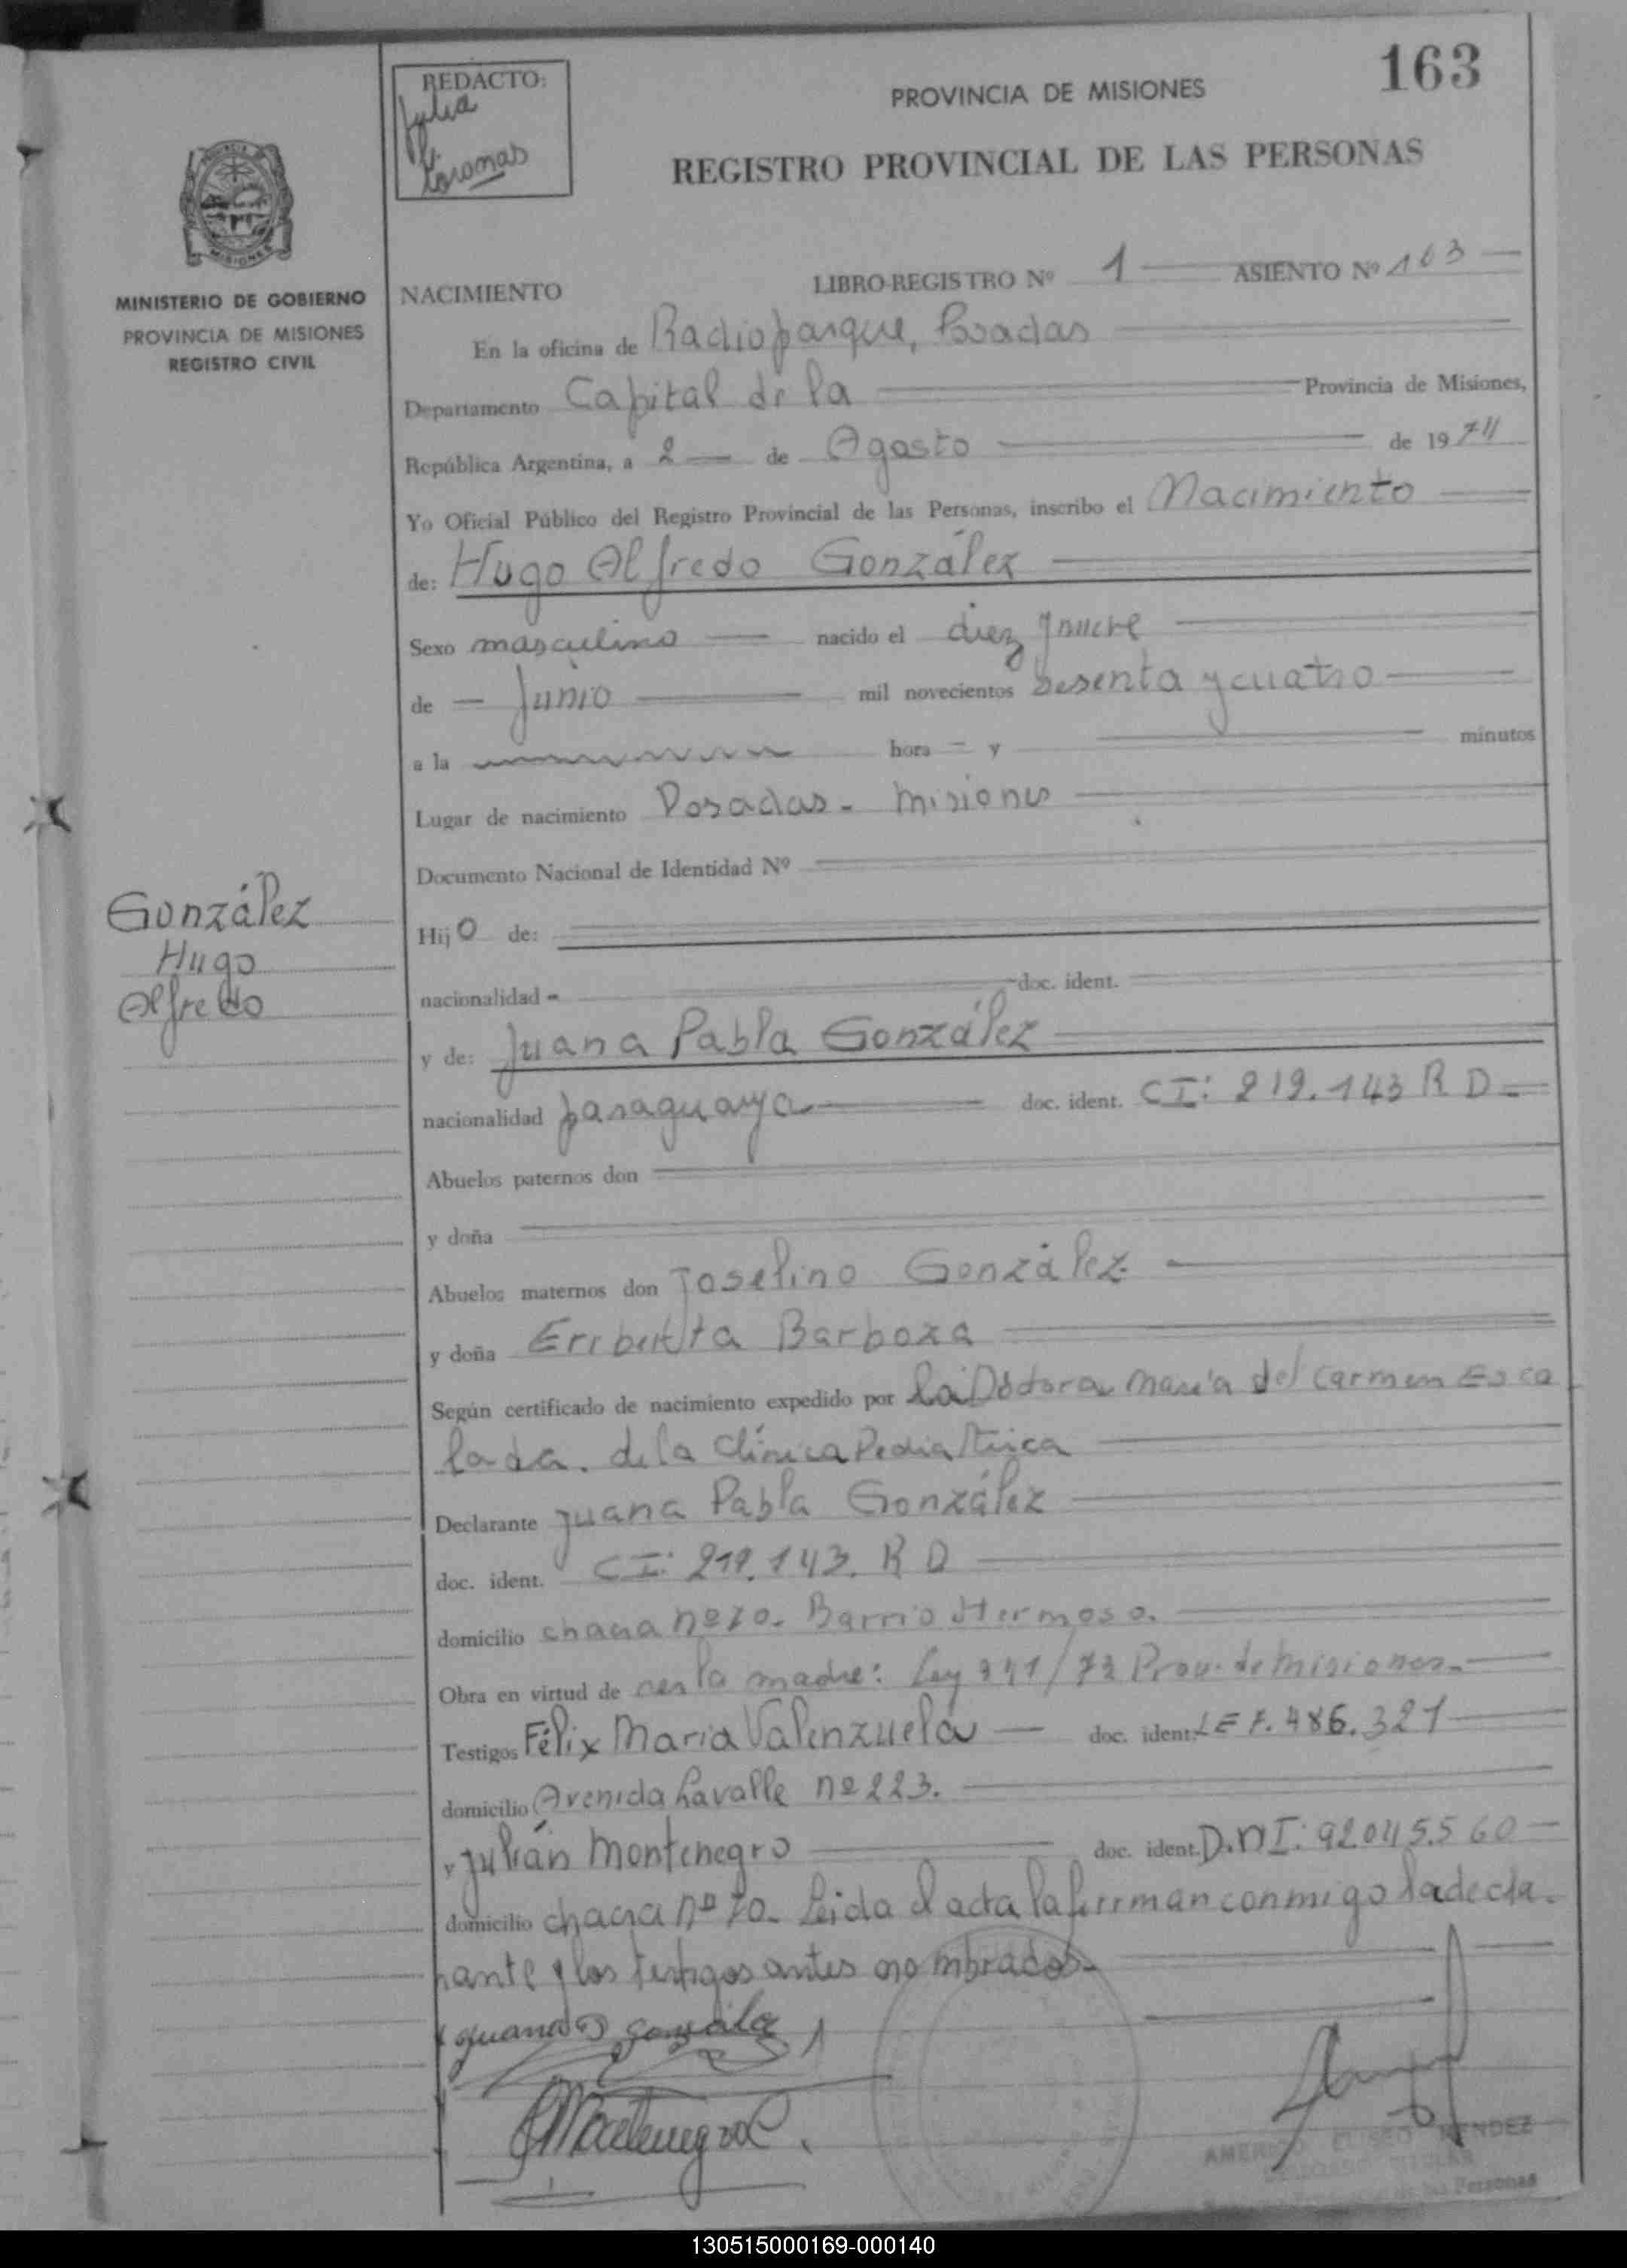 163
REDACTO:
Julia
PROVINCIA DE MISIONES
REGISTRO PROVINCIAL DE LAS PERSONAS
MISIONES
MINISTERIO DE GOBIERNO
PROVINCIA DE MISIONES
REGISTRO CIVIL
NACIMIENTO LIBRO-REGISTRO Nº 1 ASIENTO Nº 163
En la oficina de Radioparque, Posadas
Departamento Capital de la Provincia de Misiones,
República Argentina, a 2 de Agosto de 1974
Yo Oficial Público del Registro Provincial de las Personas, inscribo el Nacimiento
de: Hugo Alfredo González
Sexo masculino nacido el diez y nueve
de Junio mil novecientos sesenta y cuatro
a la hora y minutos
Lugar de nacimiento Posadas - Misiones
Documento Nacional de Identidad Nº
González
Hugo
Alfredo
Hijo de:
nacionalidad doc. ident.
y de: Juana Pabla González
nacionalidad paraguaya doc. ident. CI: 219.143 R D
Abuelos paternos don
y doña
Abuelos maternos don Joselino González
y doña Eriberta Barboza
Según certificado de nacimiento expedido por la Doctora María del Carmen Esca
lada. de la Clínica Pediatrica
Declarante Juana Pabla González
doc. ident. CI: 219.143. R D
domicilio chacra nº 70. Barrio Hermoso.
Obra en virtud de ser la madre: Ley 341/72 Prov. de Misiones.
Testigos Félix Maria Valenzuela doc. ident. LE 7.486.321
domicilio Avenida Lavalle nº 223.
y Julián Montenegro doc. ident. D.NI: 92.045.560
domicilio chacra nº 70. Leida el acta la firman conmigo la decla-
rante y los testigos antes nombrados.
Juana P González
Montenegro
MENDEZ
de las Personas
130515000169-000140